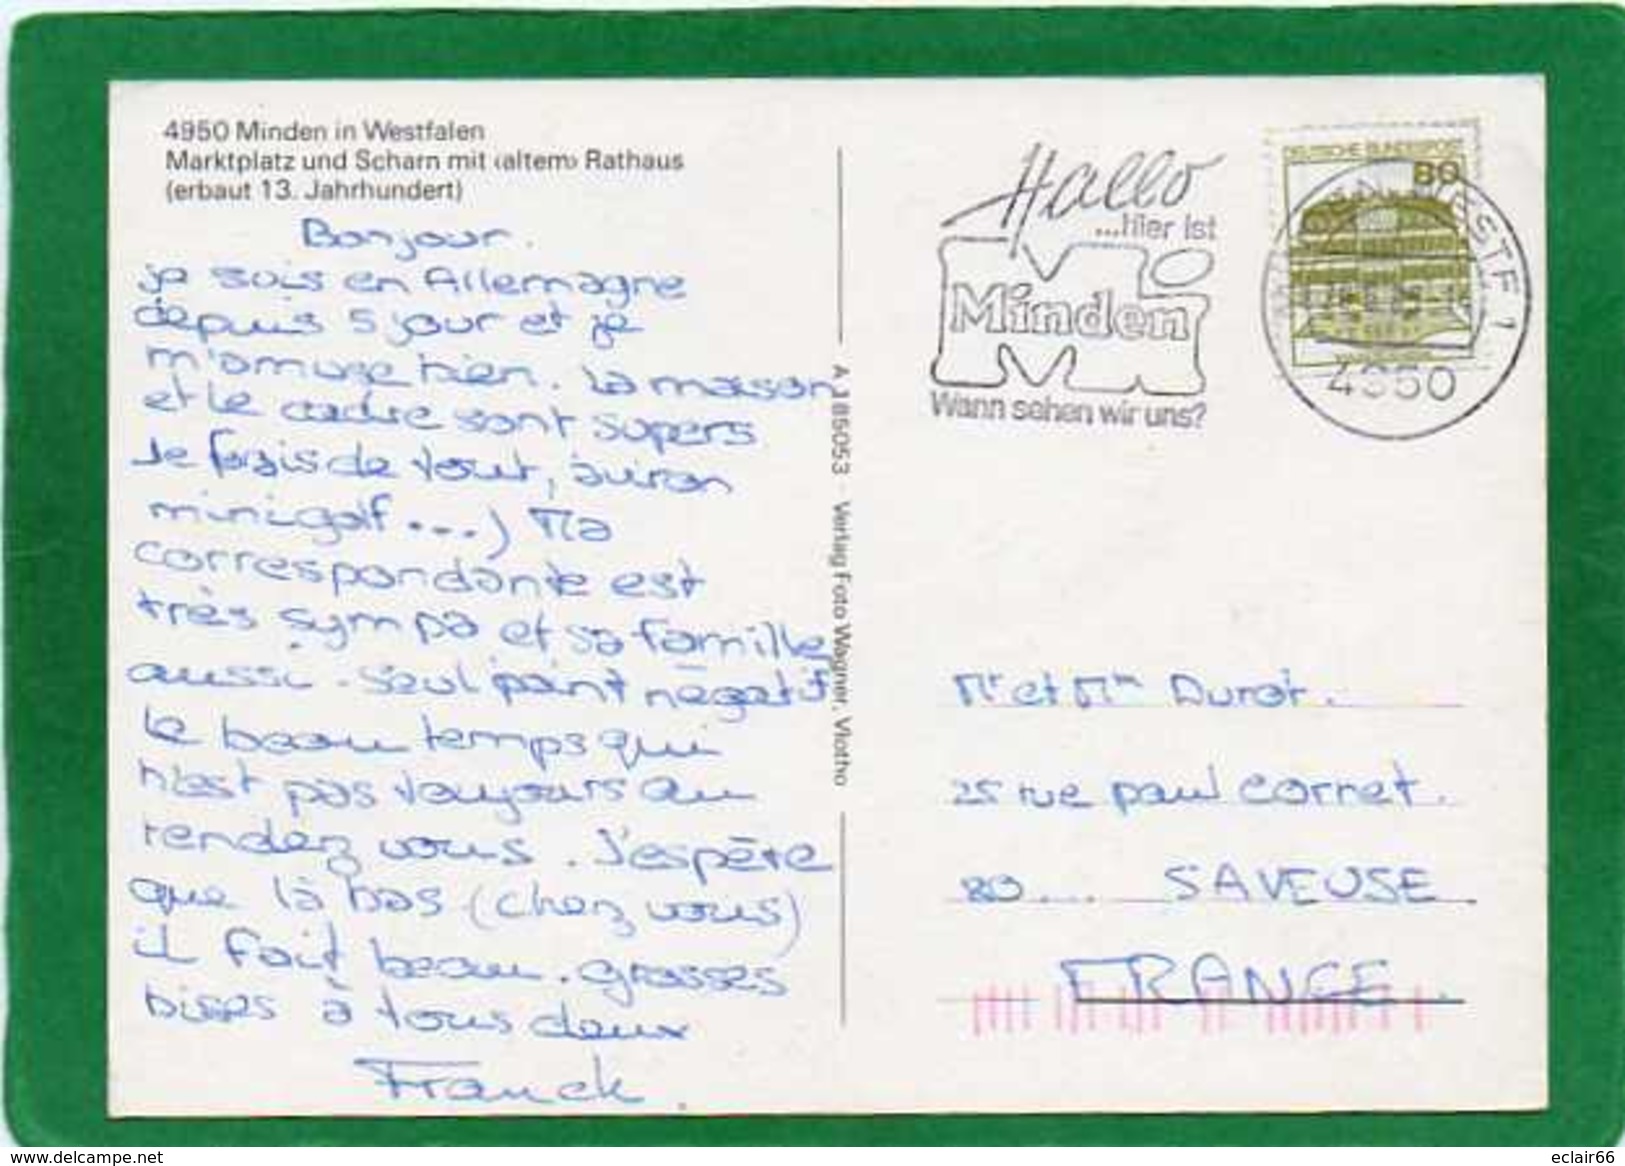 4950 Minden in Westfalen
Marktplatz und Scharn mit ‹altem› Rathaus
(erbaut 13. Jahrhundert)
Bonjour.
je suis en Allemagne
depuis 5 jour et je
m'amuse bien. La maison
et le cadre sont supers
Je fais de tout, aviron
minigolf ...) Ma
correspondante est
très sympa et sa famille
aussi. Seul point négatif
le beau temps qui
n'est pas toujours au
rendez vous. J'espère
que là bas (chez vous)
il fait beau. grosses
bises à tous deux
Franck.
A 185053 Verlag Foto Wagner, Vlotho
Hallo
...hier ist
Minden
Wann sehen wir uns?
DEUTSCHE BUNDESPOST
80
WESTF 1
4950
Mr et Mme Durot.
25 rue paul cornet.
80 .... SAVEUSE.
FRANCE.
delcampe.net
eclair66